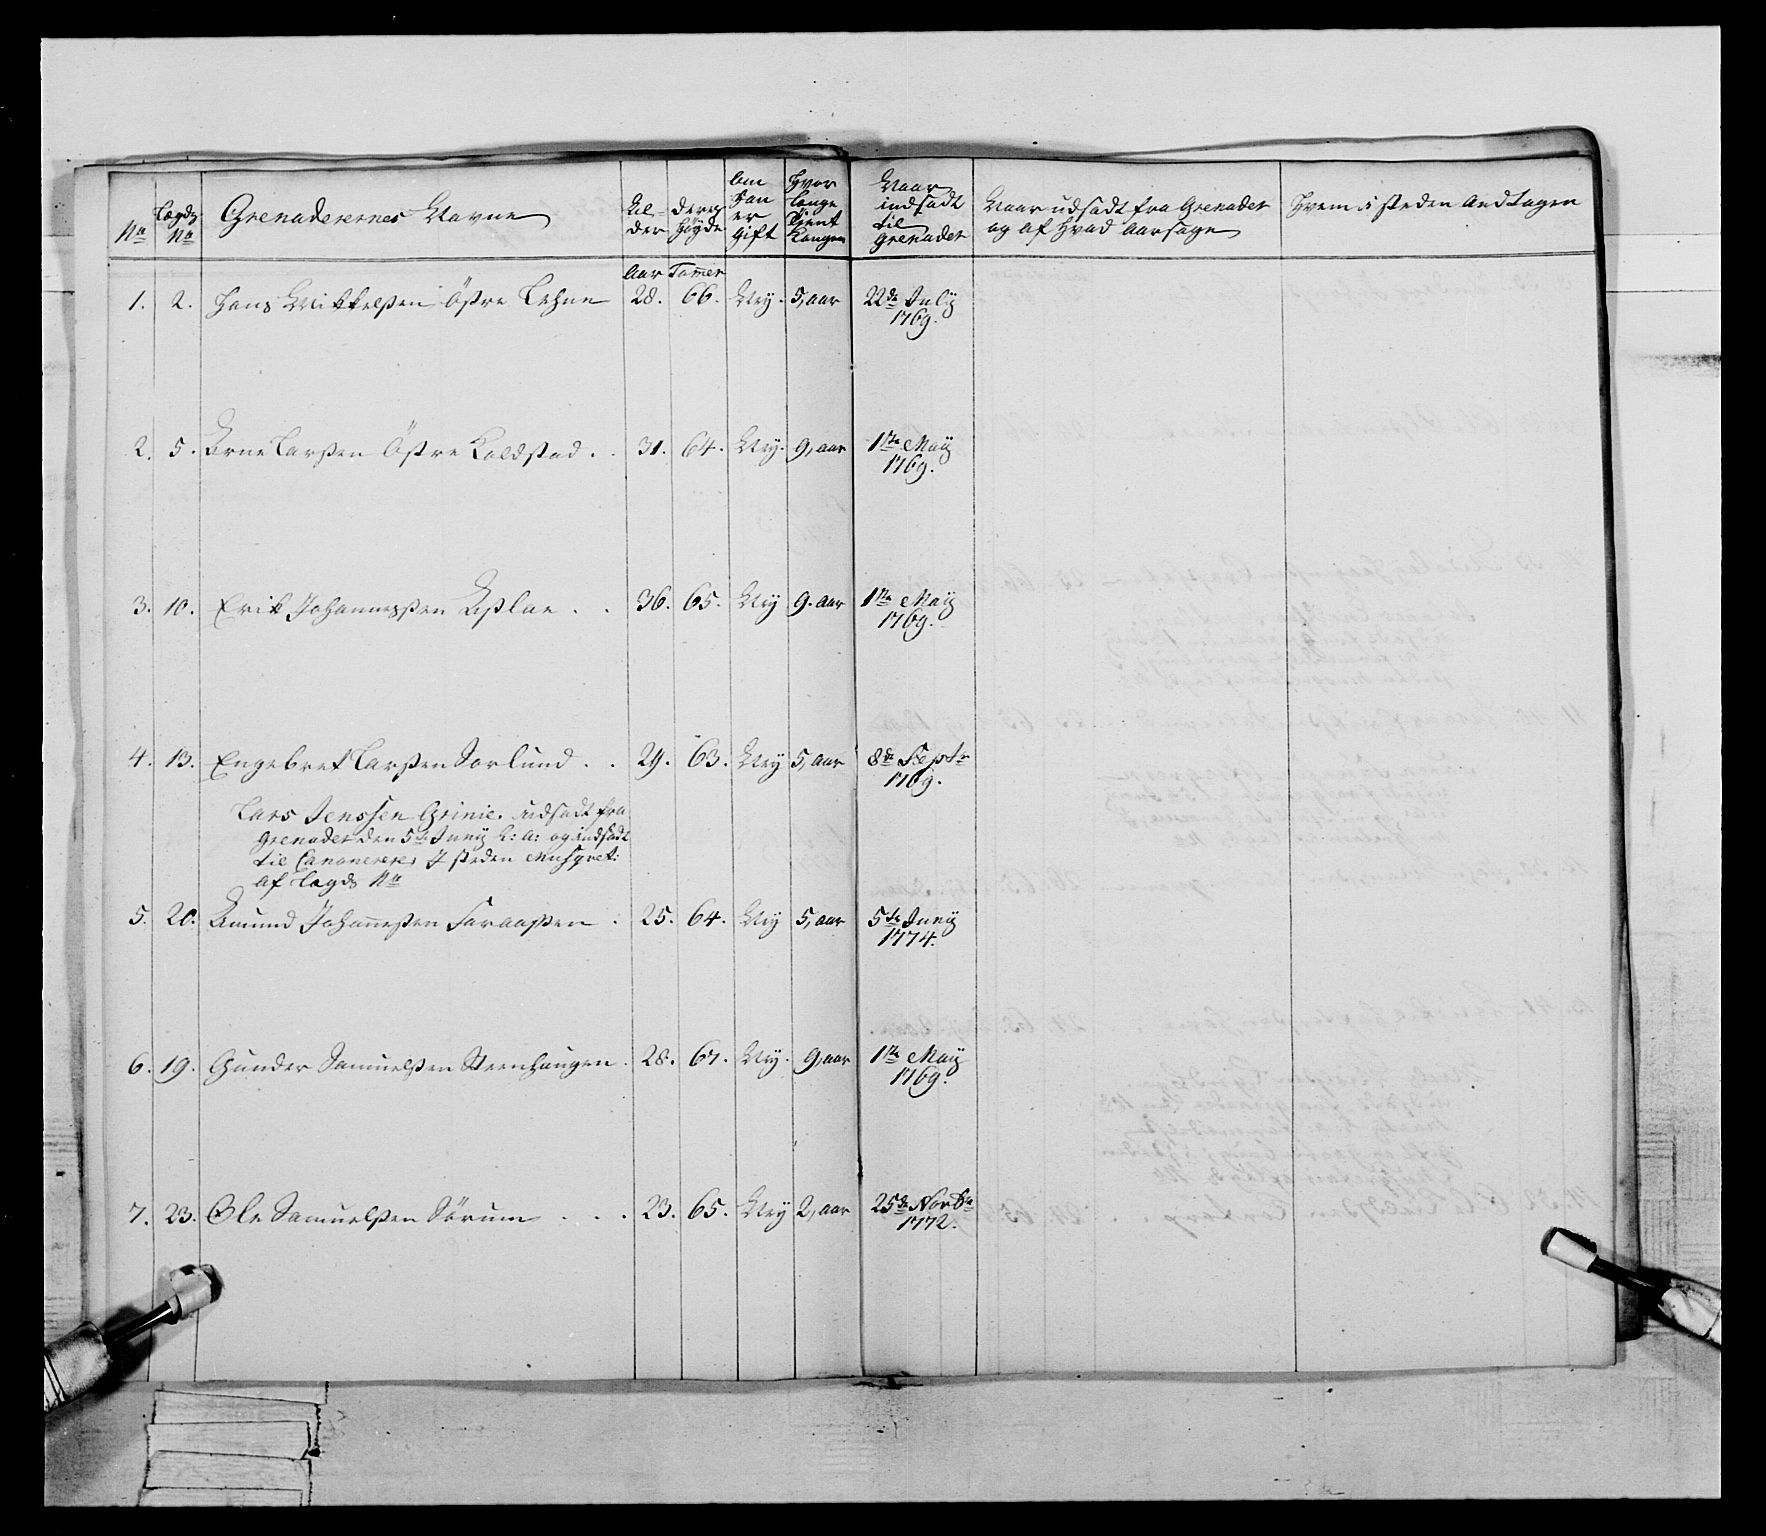 No
Lægds No
Grenaderernes Navne
Al-der
Deres Høyde
Om Han er Gift
Hvor længe Tient Kongen
Naar indsadt til Grenader
Naar udsadt fra Grenader og af Hvad Aarsage
Hvem i steden Andtagen
Aar Tom̄er
1. 2. Hans Mikkelsen Østre Lehne 28. 66. Ney. 5, aar 22de July 1769.
2. 5. Arne Larsen Østre Kaldstad. 31. 64. Ney. 9, aar 1te May 1769.
3. 10. Erik Johannessen 36. 65. Ney 9. aar 1te May 1769.
4. 13. Engebret Larsen Sorlund. 29. 63. Ney 5, aar 8de Septr 1769.
Lars Jenssen Grinie. udsadt fra
Grenader den 5te Juny h: a: og indsadt
til Canonerer, I steden Musqvet:
af Lægds No
5. 20. Amund Johan̄essen 25. 64. Ney 5, aar 5te Juny 1774.
6. 19. Gunder Samuelsen Steenhaugen. 28. 67. Ney. 9, aar 1te May 1769.
7. 23. Ole Samuelsen Sørum 23. 65. Ney 2, aar 25de Novbr 1772.